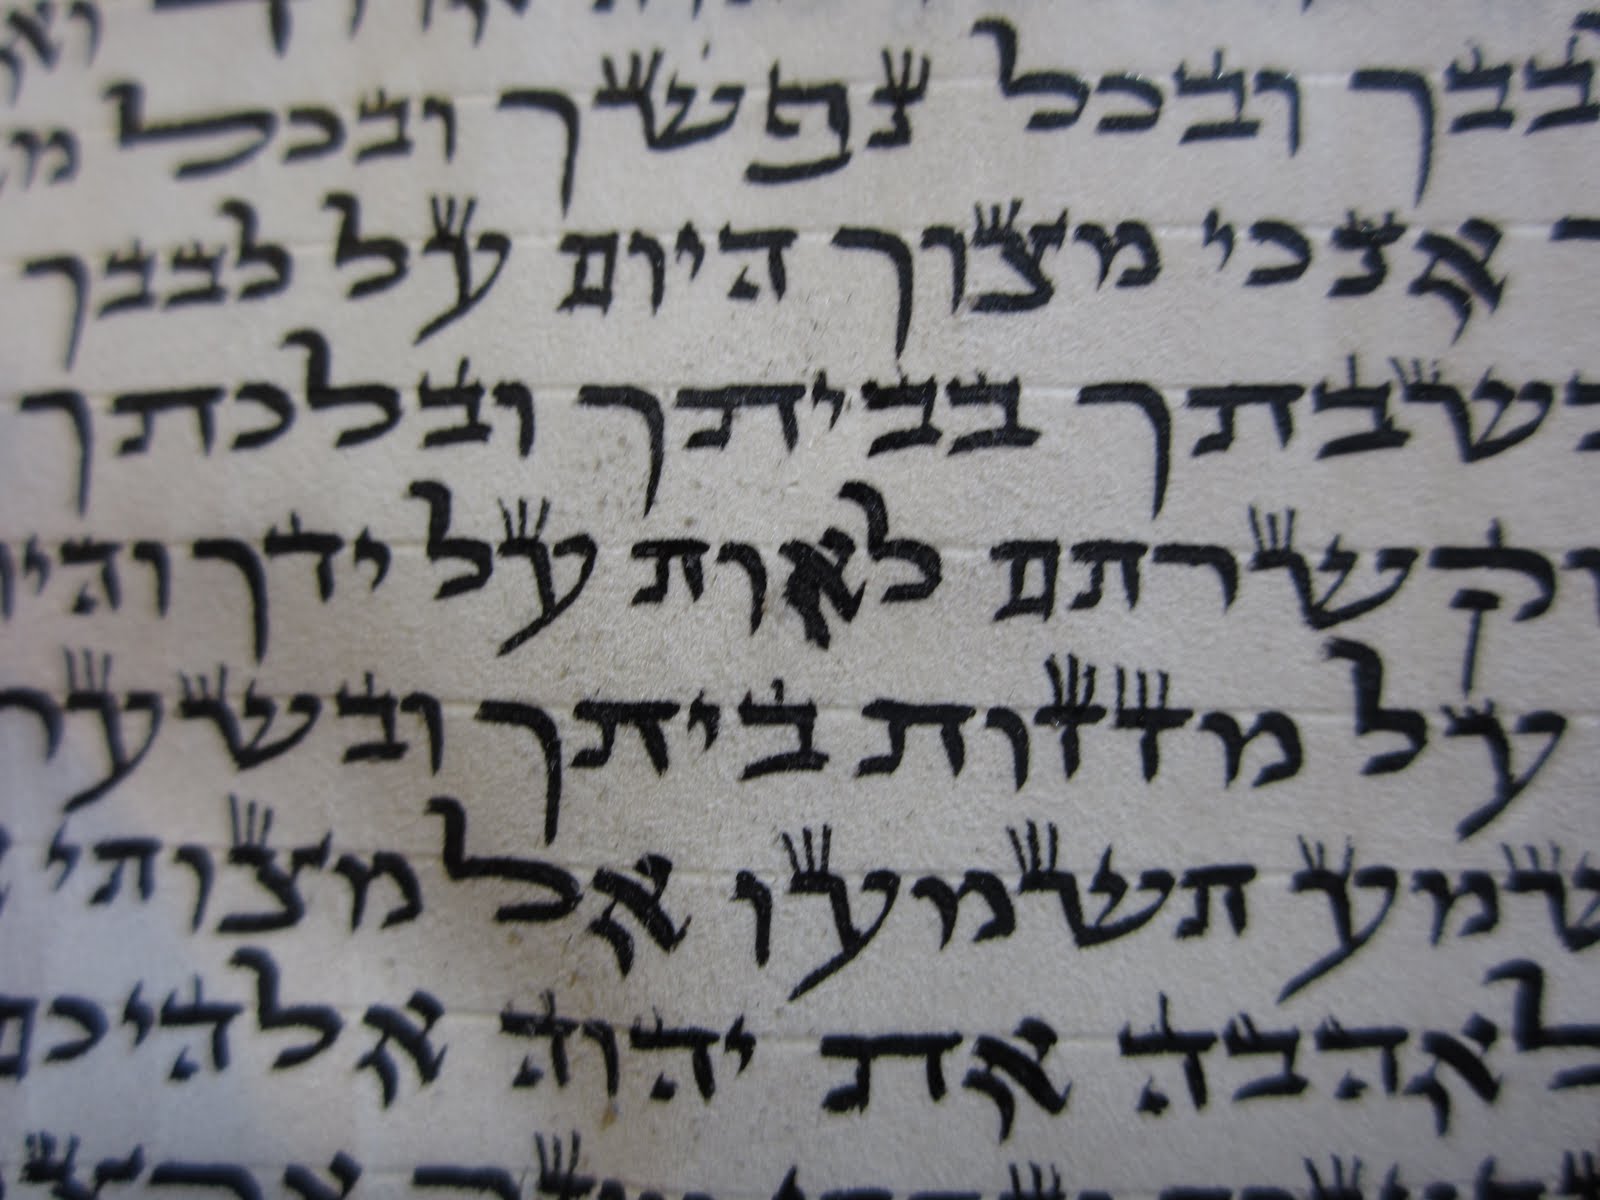 בבך ובכל נפשך ובכל מ
ך אנכי מצוך היום על לבבך
בשבתך בביתך ובלכתך
וקשרתם לאות על ידך והיו
על מזזות ביתך ובשער
שמע תשמעו אל מצותי
לאהבה את יהוה אלהיכם